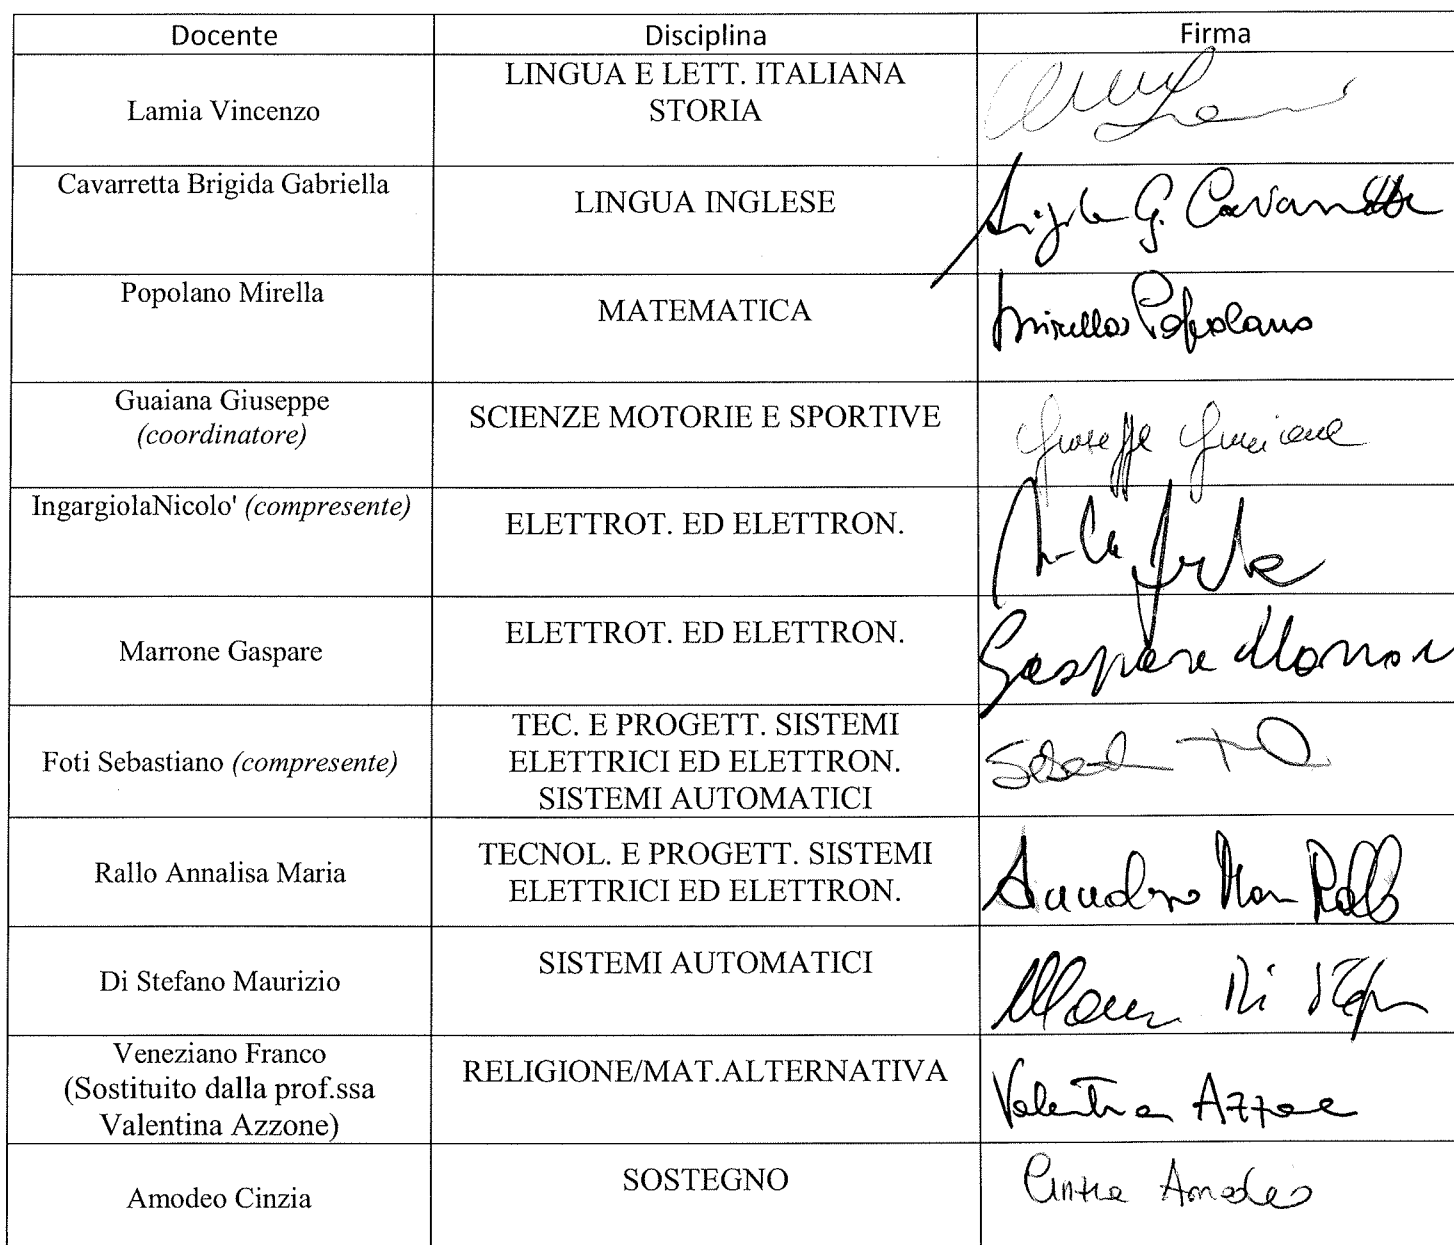 Docente Disciplina Firma
Lamia Vincenzo
LINGUA E LETT. ITALIANA
STORIA
Cavarretta Brigida Gabriella
LINGUA INGLESE
G. Cavarretta
Popolano Mirella
MATEMATICA
Mirella Popolano
Guaiana Giuseppe
(coordinatore)
SCIENZE MOTORIE E SPORTIVE
Giuseppe Guaiana
IngargiolaNicolo' (compresente)
ELETTROT. ED ELETTRON.
Marrone Gaspare
ELETTROT. ED ELETTRON.
Gaspare Marrone
Foti Sebastiano (compresente)
TEC. E PROGETT. SISTEMI
ELETTRICI ED ELETTRON.
SISTEMI AUTOMATICI
Rallo Annalisa Maria
TECNOL. E PROGETT. SISTEMI
ELETTRICI ED ELETTRON.
Rallo
Di Stefano Maurizio
SISTEMI AUTOMATICI
Di
Veneziano Franco
(Sostituito dalla prof.ssa
Valentina Azzone)
RELIGIONE/MAT.ALTERNATIVA
Valentina Azzone
Amodeo Cinzia
SOSTEGNO
Cinzia Amodeo